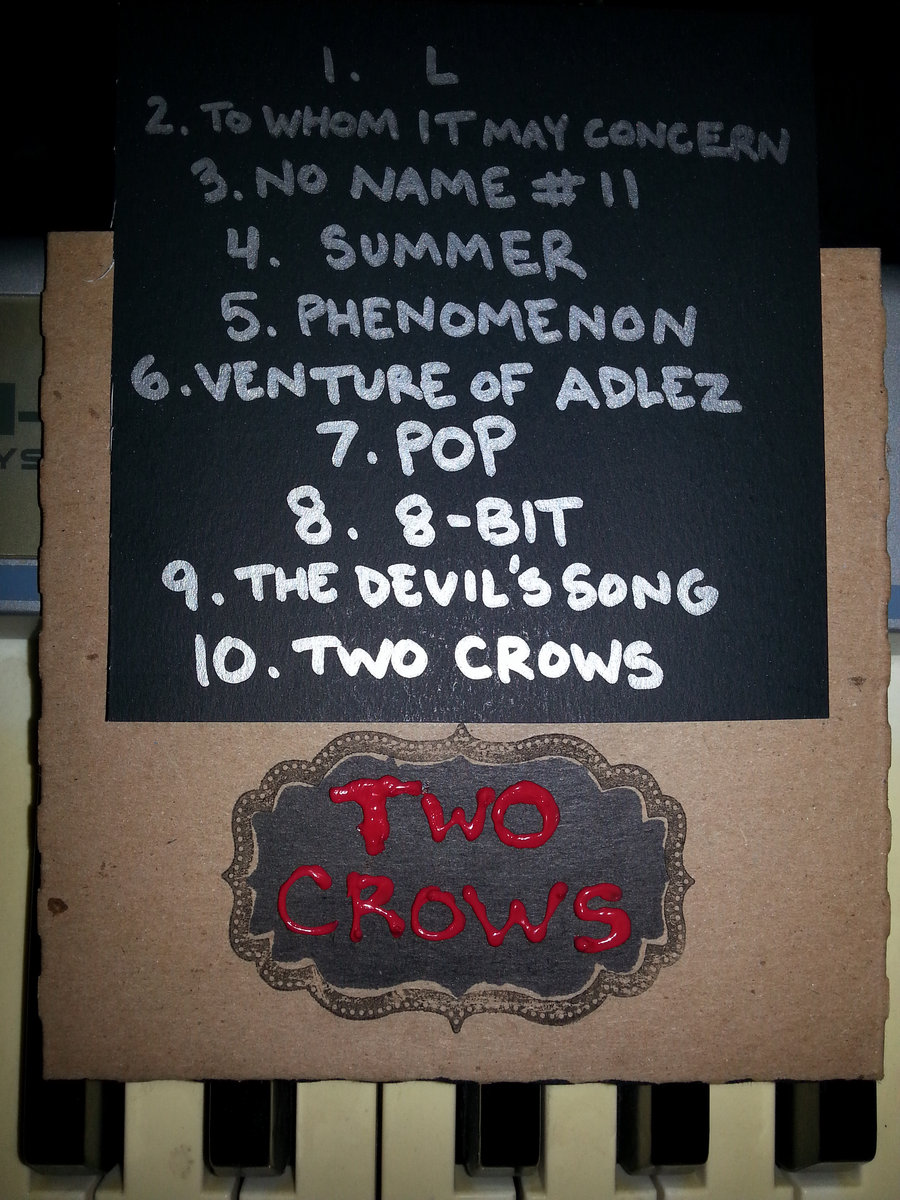 1. L
2. TO WHOM IT MAY CONCERN
3. NO NAME #11
4. SUMMER
5. PHENOMENON
6. VENTURE OF ADLEZ
7. POP
8. 8-BIT
9. THE DEVIL'S SONG
10. TWO CROWS
YS
TWO
CROWS